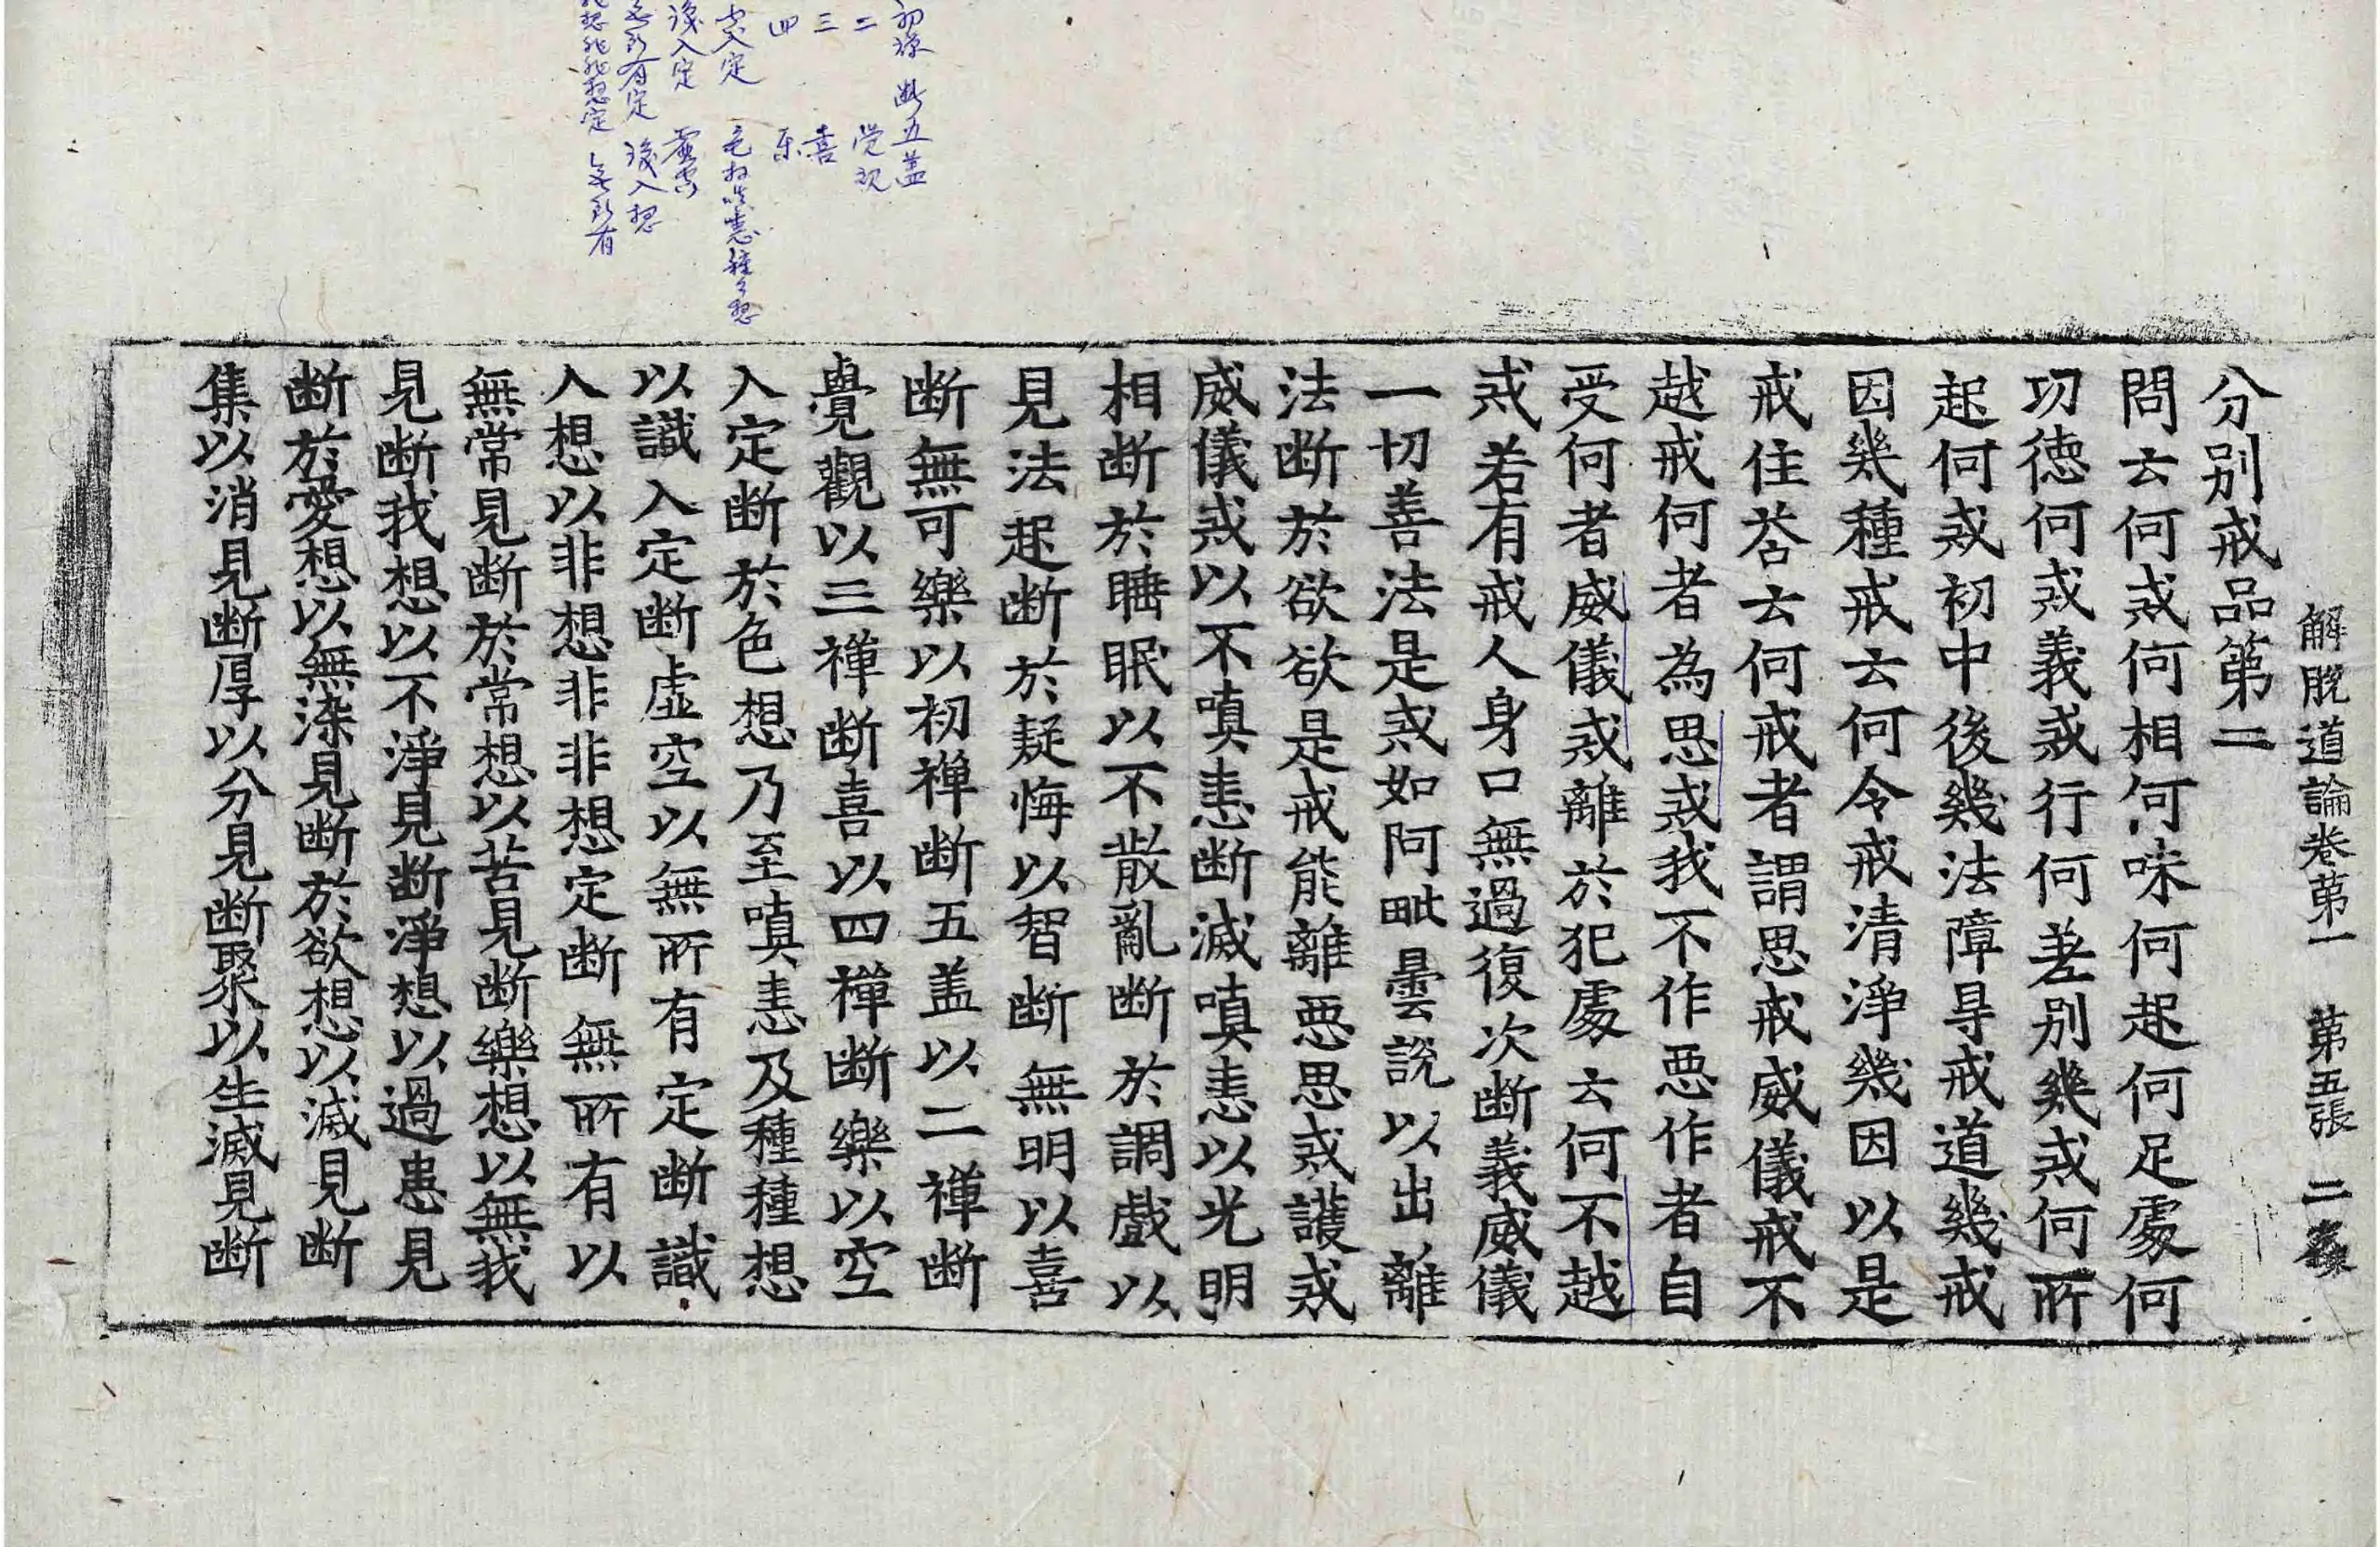 解脫道論卷第一 第五張
分別戒品第二
問云何戒何相何味何起何足處何
功德何戒義戒行何差別幾戒何所
起何戒初中後幾法障㝵戒道幾戒
因幾種戒云何令戒清淨幾因以是
戒住荅云何戒者謂思戒威儀戒不
越戒何者為思戒我不作惡作者自
受何者威儀戒離於犯處云何不越
戒若有戒人身口無過復次断義威儀
一切善法是戒如阿毗曇說以出離
法断於欲欲是戒能離惡思戒護戒
威儀戒以不嗔恚断滅嗔恚以光明
相断於睡眠以不散亂断於調戲以
見法起断於疑悔以智断無明以喜
断無可樂以初禪断五盖以二禪断
覺觀以三禪断喜以四禪断樂以空
入定断於色想乃至嗔恚及種種想
以識入定断虛空以無所有定断識
入想以非想非非想定断無所有以
無常見断於常想以苦見断樂想以無我
見断我想以不淨見断淨想以過患見
断於愛想以無染見断於欲想以滅見断
集以消見断厚以分見断聚以生滅見断
初禅 断五盖
二 觉观
三 喜
四 乐
空入定 色想嗔恚種々想
識入定 虛空
無所有定 識入想
非想非非想定 無所有